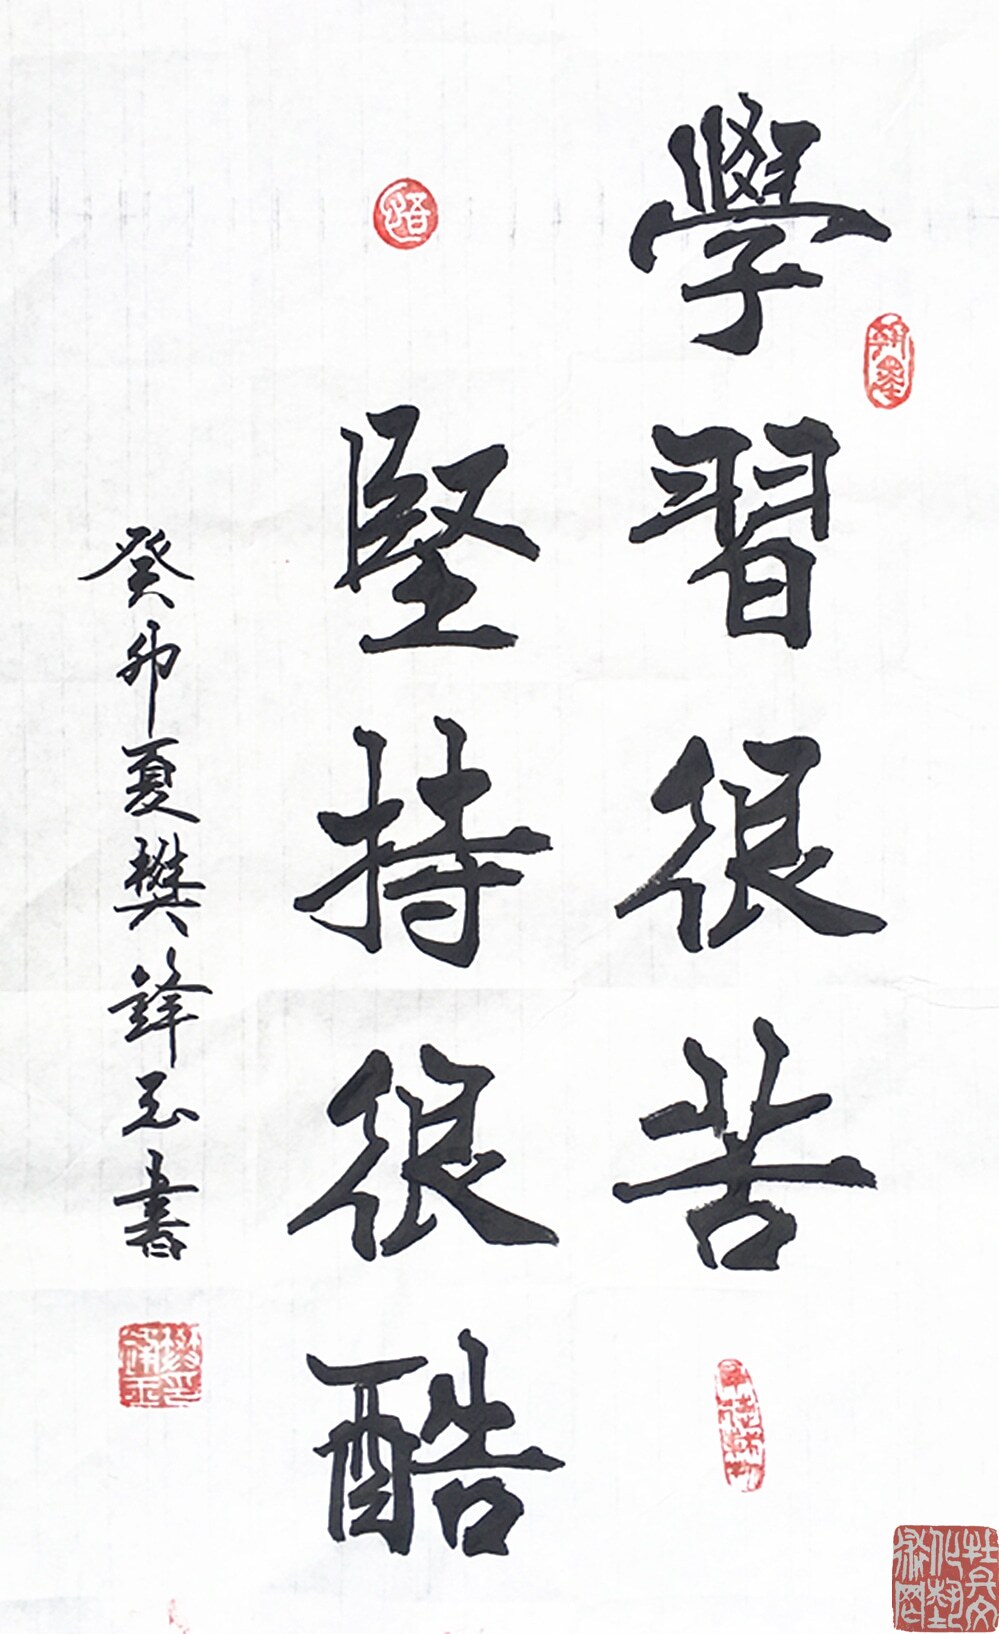 學習很苦
堅持很酷
癸卯夏樊鋒玉書
悟
翰墨